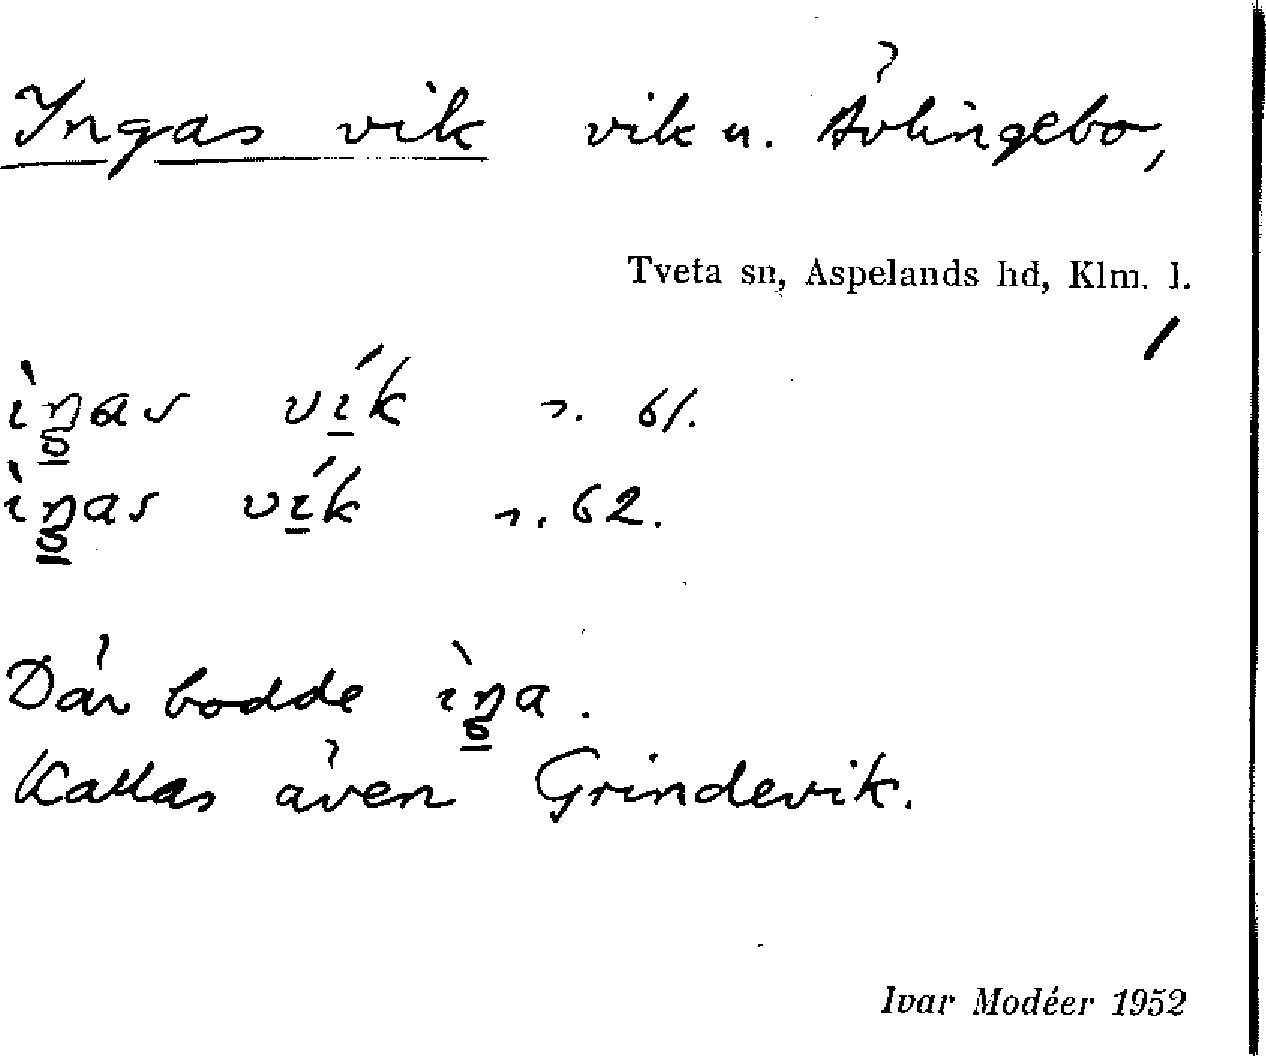 Ingas vik vik u. Ävlingebo,
Tveta sn, Aspelands hd, Klm. l.
ìŋas vík s. 61.
ìŋas vík s. 62.
Där bodde ìŋa.
Kallas även Grindevik.
Ivar Modéer 1952